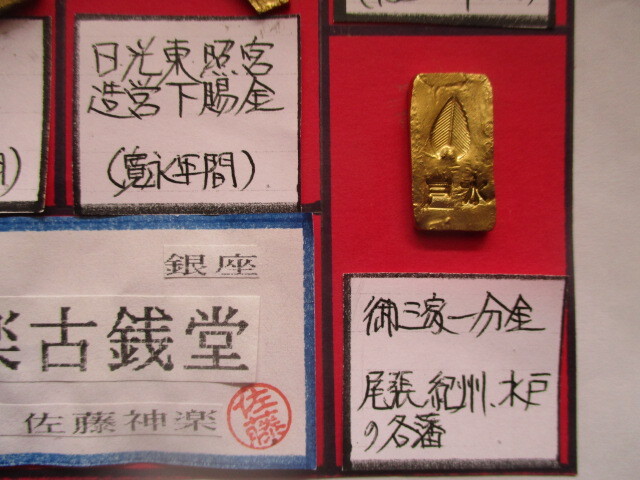 日光東照宮
造営下賜金
(寛永年間)
水戸
銀座
古銭堂
佐藤神楽
佐藤
御三家一分金
尾張、紀州、水戸
の各藩